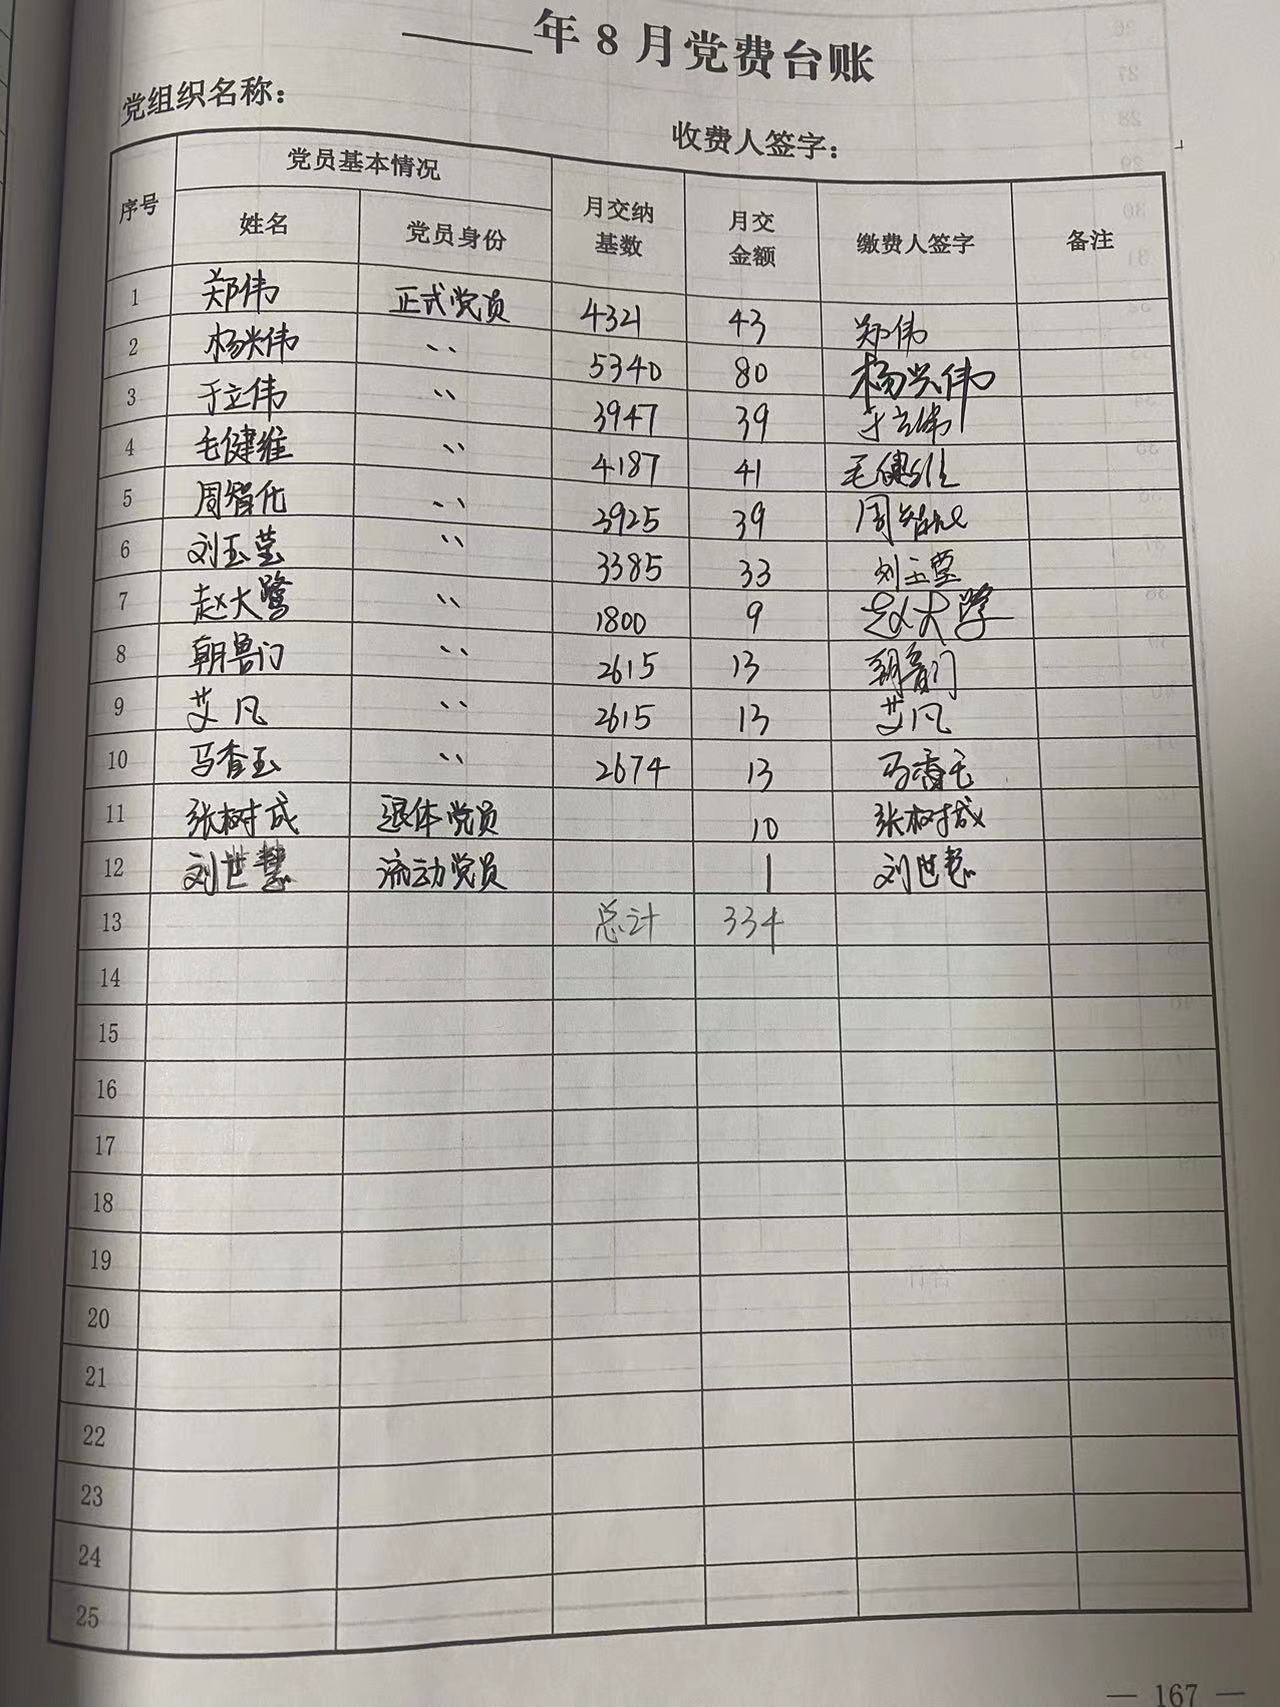 ____年8月党费台账
党组织名称：
收费人签字：
序号 党员基本情况 月交纳基数 月交金额 缴费人签字 备注
姓名 党员身份
1 郑伟 正式党员 4321 43 郑伟
2 杨兴伟 〃 5340 80 杨兴伟
3 于立伟 〃 3947 39 于立伟
4 毛健维 〃 4187 41 毛健维
5 周智化 〃 3925 39 周智化
6 刘玉莹 〃 3385 33 刘玉莹
7 赵大鹭 〃 1800 9 赵大
8 朝鲁门 〃 2615 13 朝鲁门
9 艾凡 〃 2615 13 艾凡
10 马香玉 〃 2674 13 马香玉
11 张树成 退休党员 10 张树成
12 刘世慧 流动党员 1 刘世慧
13 总计 334
14
15
16
17
18
19
20
21
22
23
24
25
— 167 —